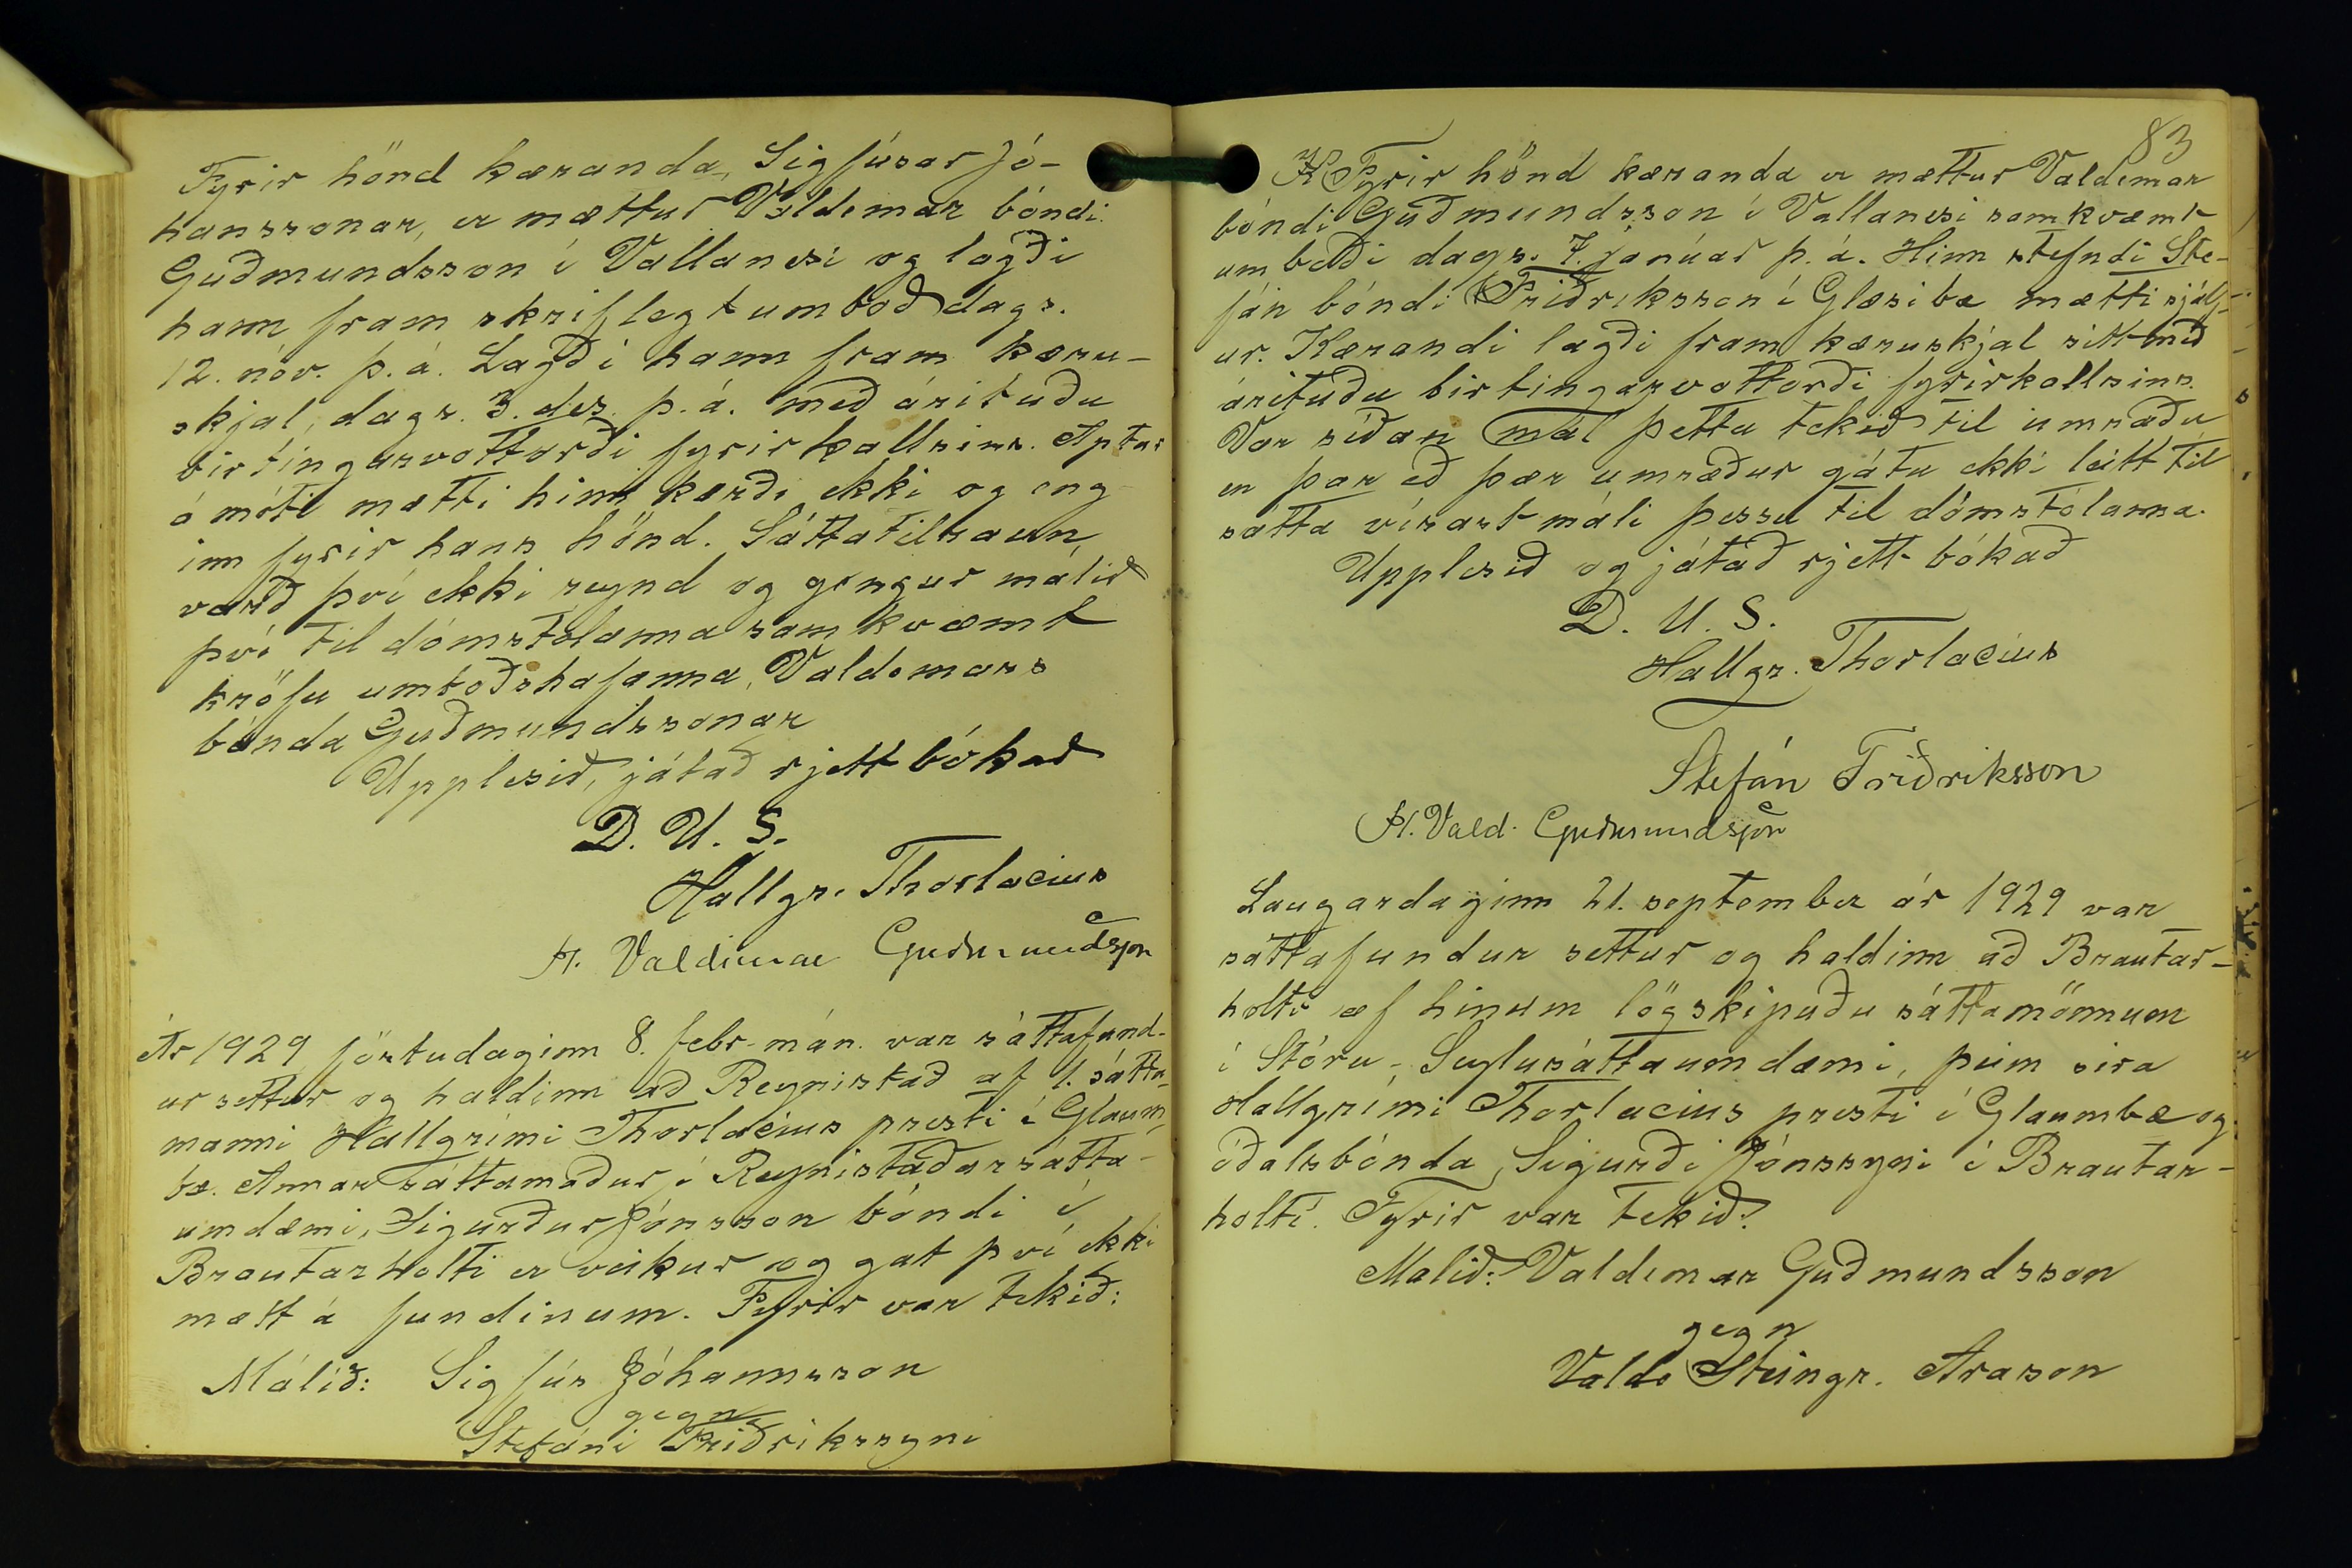 Fyrir hönd kæranda, Sigfúsar Jó-
hanssonar, er mættur Valdemar bóndi
Guðmundsson í Vallanesi og lagði
hann fram skriflegt umboð dags.
12. nóv. þ. á. Lagði hann fram kæru-
skjal, dags. 3. des. þ. á. með árituðu
birtingarvottorði fyrirkallsins. Aptur
á móti mætti hinn kærði ekki og eng
inn fyrir hans hönd. Sáttatilraun
varð því ekki reynd og gengur málið
því til dómstólanna samkvæmt
kröfu umboðshafanna, Valdemars
bónda Guðmundssonar
Upplesið, játað rjett bókað
D. U. S.
Hallgr. Thorlacius
H. Valdimar Guðmundsson
Ár 1929 föstudaginn 8. febr. mán. var sáttafund-
ur settur og haldinn að Reynistað af 1. sátta-
manni Hallgrími Thorlacius presti í Glaum-
bæ. Annar sáttamaður í Reynistaðarsátta-
umdæmi, Sigurður Jónsson bóndi í
Brautarholti er veikur og gat því ekki
mætt á fundinum. Fyrir var tekið:
Málið: Sigfús Jóhannsson
gegn
Stefáni Friðrikssyni
83
Fyrir hönd kæranda er mættur Valdemar
bóndi Guðmundsson í Vallanesi samkvæmt
umboði dags. 7. janúar þ. á. Hinn stefndi Ste-
fán bóndi Friðriksson í Glæsibæ mætti sjálf-
ur. Kærandi lagði fram kæruskjal sitt með
árituðu birtingarvottorði fyrirkallsins.
Var síðan mál þetta tekið til umræðu
en þar eð þær umræður gátu ekki leitt til
sátta vísast máli þessu til dómstólanna.
Upplesið og játað rjett bókað
D. U. S.
Hallgr. Thorlacius
Stefán Friðriksson
H. Vald. Guðmundsson
Laugardaginn 21. september ár 1929 var
sáttafundur settur og haldinn að Brautar-
holti af hinum lögskipuðu sáttamönnum
í Stóru-Seylusáttaumdæmi, þeim sira
Hallgrími Thorlacius presti í Glaumbæ og
óðalsbónda, Sigurði Jónssyni í Brautar-
holti. Fyrir var tekið:
Malið: Valdemar Guðmundsson
gegn
Steingr. Arason